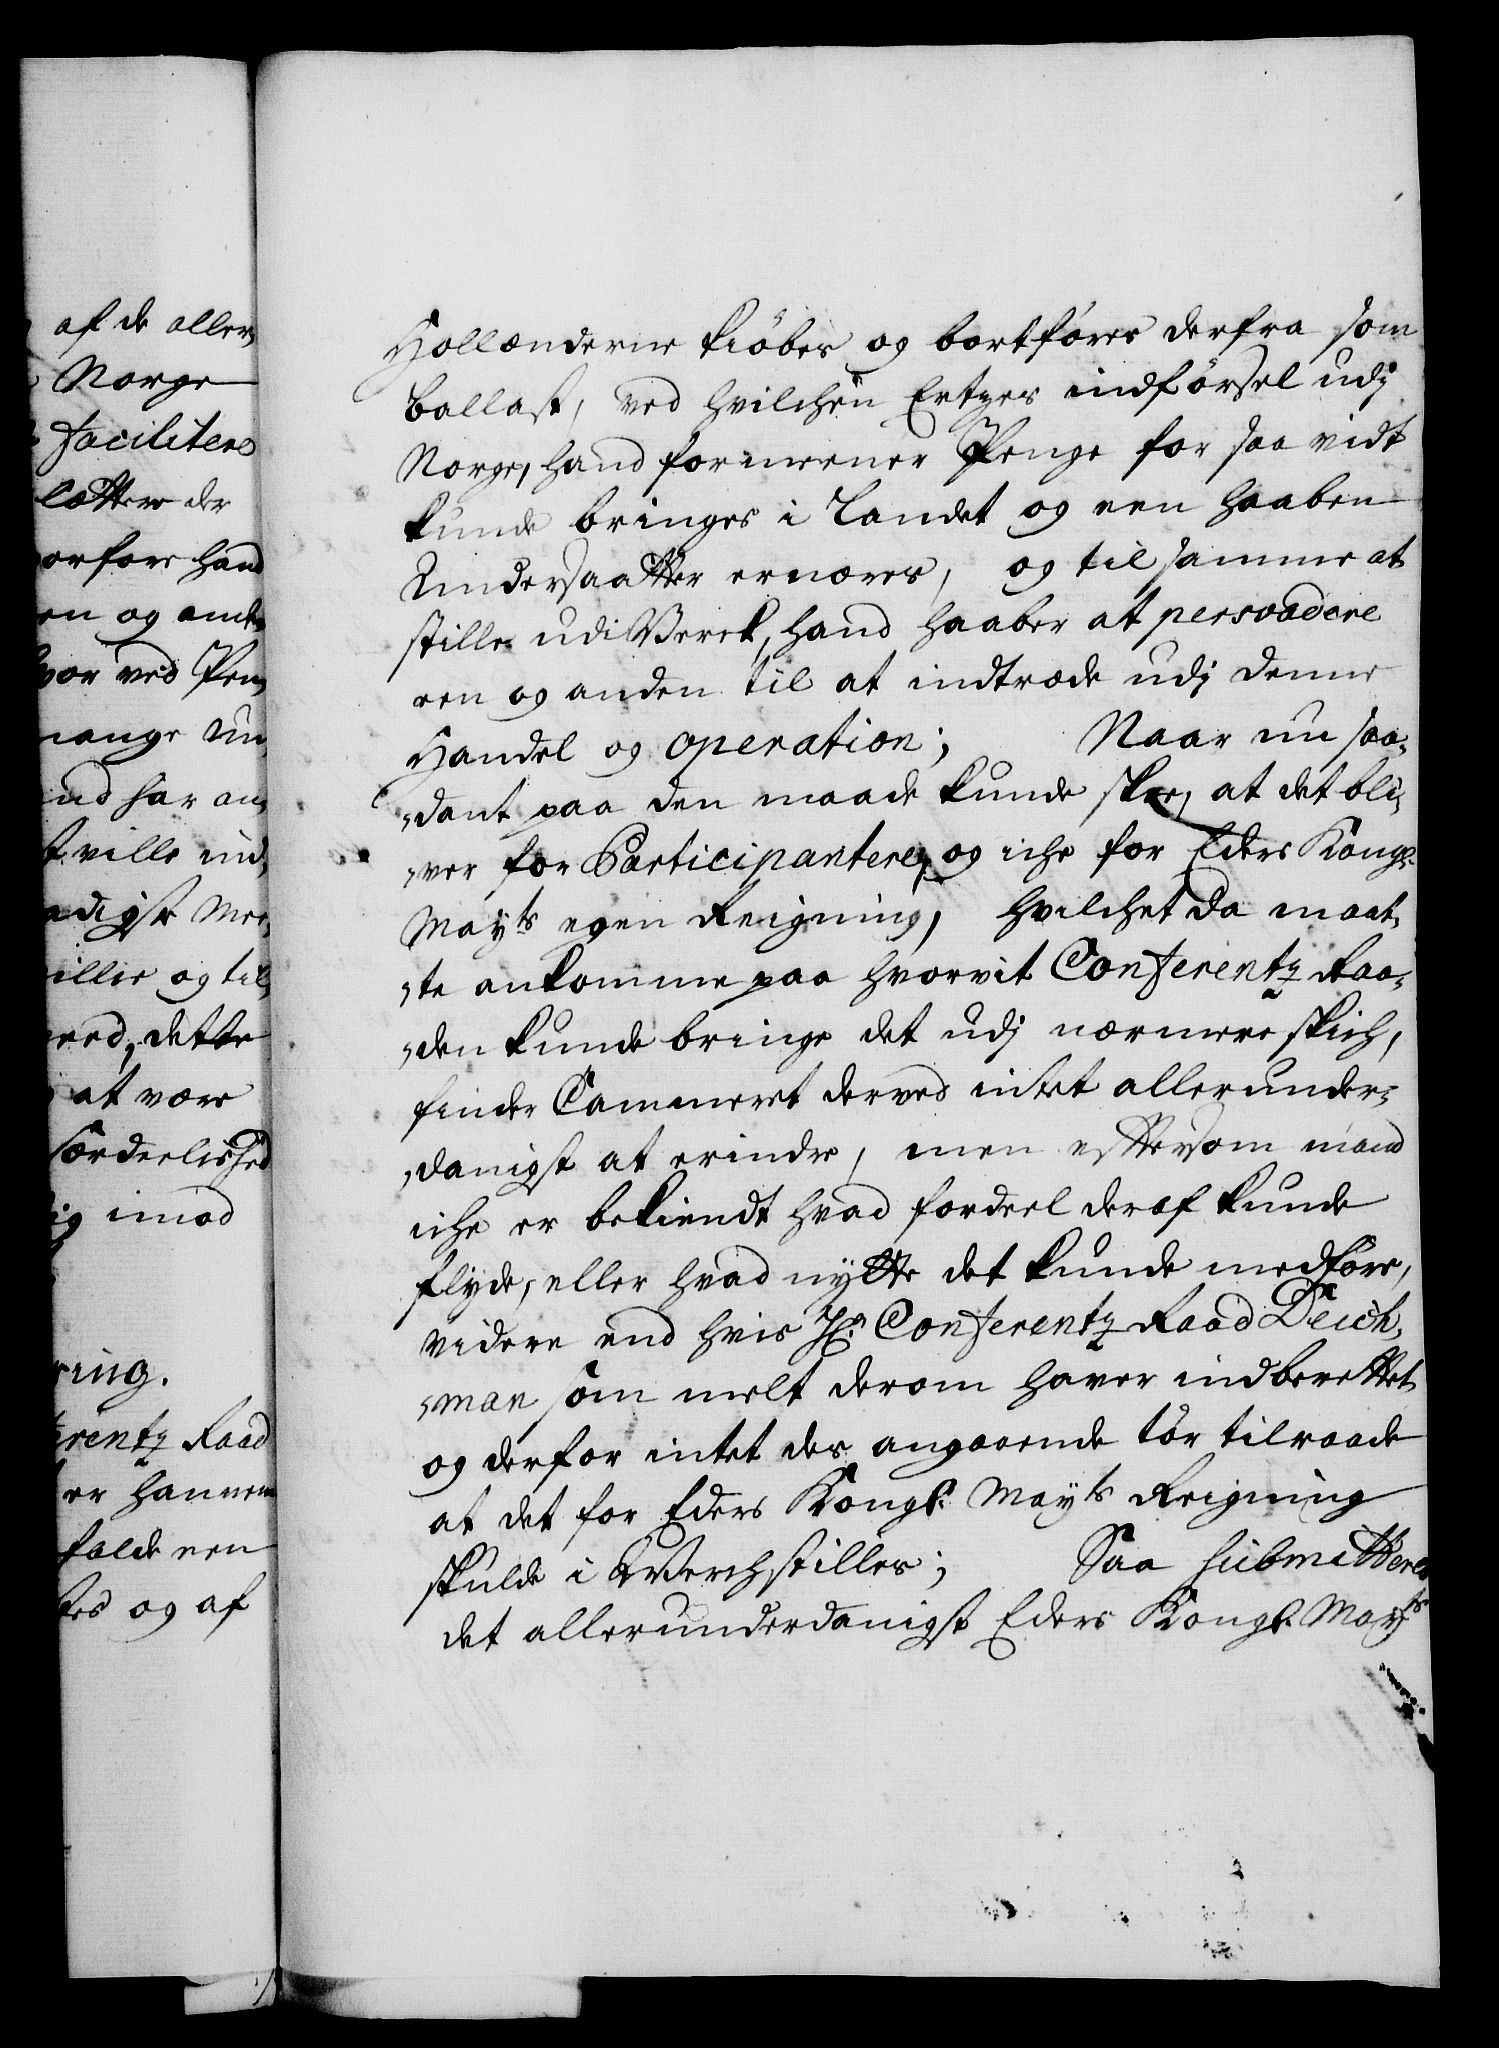 af de aller,
Norge
facilitere
lættere der
orfore hand
en og anden
vor ved Pen,
mange Un,
nd har an,
t ville ind,
adigst Mee,
illie og til,
eed, dette
at være
særdeelished
ig imod
ring.
erentz Raad
er hannem
falde een
tes og af
Hollænderne kiöbes og bortföres derfra som
Ballast, ved hvilchen Ertzes indförsel udj
Norge, hand formeener Penge for saa vidt
kunde bringes i Landet og een haaben
Undersaatter ernæres, og til samme at
stille udi Verck, hand haaber at persvadere
een og anden til at indtræde udj denne
Handel og operation; Naar nu saa,
,dant paa den maade kunde skee, at det bli,
,ver for Participantere, og iche for Eders Kongl.
Mayts egen Reigning, hvilchet da maat,
,te ankomme paa hvorvit Conferentz Raa,
,den kunde bringe det udj nærmere skich,
finder Cammeret derved intet allerunder,
,danigst at erindre, men eftersom mand
iche er bekiendt hvad fordeel deraf kunde
flyde, eller hvad nytte det kunde medföre,
videre end hvis Hr. Conferentz Raad Deich,
,man som melt derom haver indberettet
og derfor intet des angaaende tör tilraade
at det for Eders Kongl. Mayts Reigning
skulde i Verchstilles; Saa submitteres
det allerunderdanigst Eders Kongl. Mayts